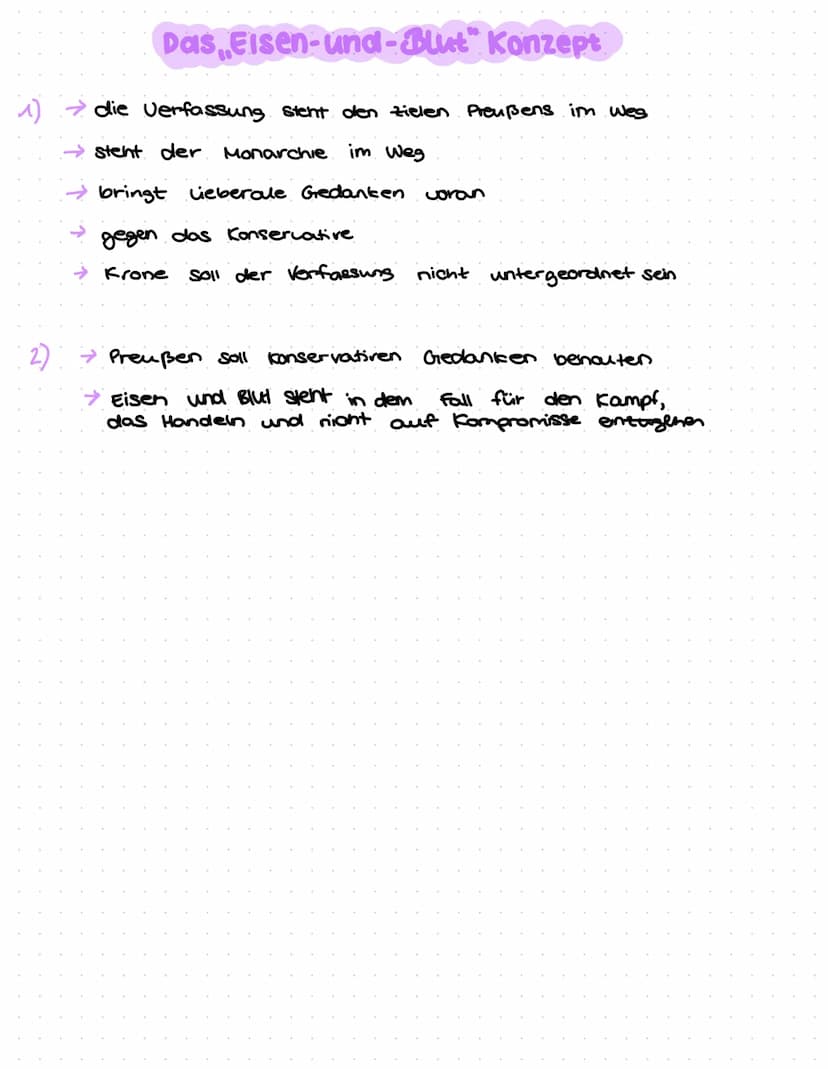 Das „Eisen-und-Blut" Konzept
1) → die Verfassung steht den Zielen Preußens im Weg
→ steht der Monarchie im Weg
→ bringt lieberale Gedanken voran
→ gegen das Konservative
→ Krone soll der Verfassung nicht untergeordnet sein
2) → Preußen soll konservativen Gedanken behalten
→ Eisen und Blut steht in dem Fall für den Kampf,
das Handeln und nicht auf Kompromisse